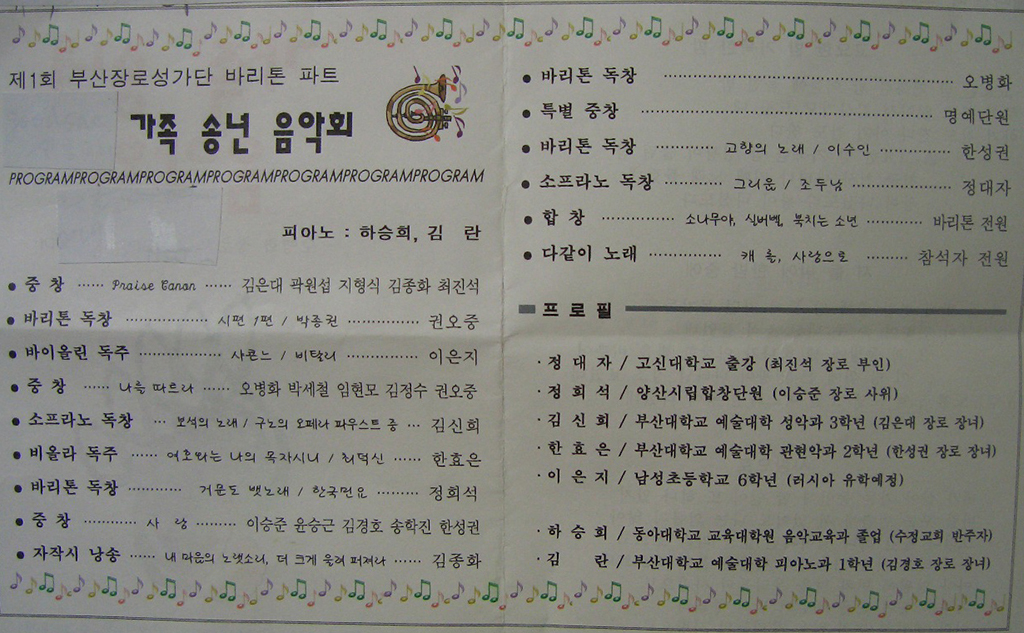 제1회 부산장로성가단 바리톤 파트
가족 송년 음악회
PROGRAMPROGRAMPROGRAMPROGRAMPROGRAMPROGRAMPROGRAM
피아노 : 하승희, 김 란
● 중 창 ······ Praise Canon ······ 김은대 곽원섭 지형식 김종화 최진석
● 바리톤 독창 ·················· 시편 1편 / 박종권 ··············· 권오중
● 바이올린 독주 ················· 샤콘느 / 비탈리 ··············· 이은지
● 중 창 ······ 나를 따르라 ······ 오병화 박세철 임현모 김정수 권오중
● 소프라노 독창 ··· 보석의 노래 / 구노의 오페라 파우스트 중 ··· 김신희
● 비올라 독주 ······ 여호와는 나의 목자시니 / 최덕신 ······ 한효은
● 바리톤 독창 ··········· 거문도 뱃노래 / 한국민요 ········· 정희석
● 중 창 ··········· 사 랑 ········· 이승준 윤승근 김경호 송학진 한성권
● 자작시 낭송 ······ 내 마음의 노랫소리, 더 크게 울려 퍼져라 ······ 김종화
● 바리톤 독창 ································ 오병화
● 특별 중창 ································ 명예단원
● 바리톤 독창 ············ 고향의 노래 / 이수인 ··············· 한성권
● 소프라노 독창 ············ 그리움 / 조두남 ····················· 정대자
● 합 창 ··············· 소나무야, 실버벨, 북치는 소년 ············ 바리톤 전원
● 다같이 노래 ··············· 캐 롤, 사랑으로 ········· 참석자 전원
프 로 필
· 정 대 자 / 고신대학교 출강 (최진석 장로 부인)
· 정 희 석 / 양산시립합창단원 (이승준 장로 사위)
· 김 신 희 / 부산대학교 예술대학 성악과 3학년 (김은대 장로 장녀)
· 한 효 은 / 부산대학교 예술대학 관현악과 2학년 (한성권 장로 장녀)
· 이 은 지 / 남성초등학교 6학년 (러시아 유학예정)
· 하 승 희 / 동아대학교 교육대학원 음악교육과 졸업 (수정교회 반주자)
· 김 란 / 부산대학교 예술대학 피아노과 1학년 (김경호 장로 장녀)